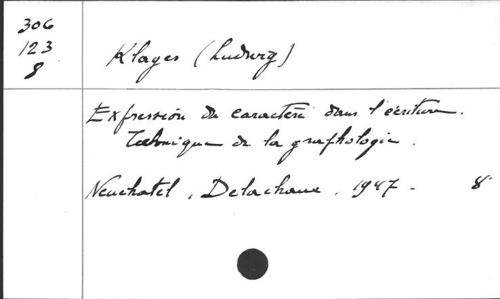 306
123
8
Klages (Ludwig)
Expression du caractère dans l'écriture.
Technique de la graphologie.
Neuchatel, Delachaux, 1947. 8°